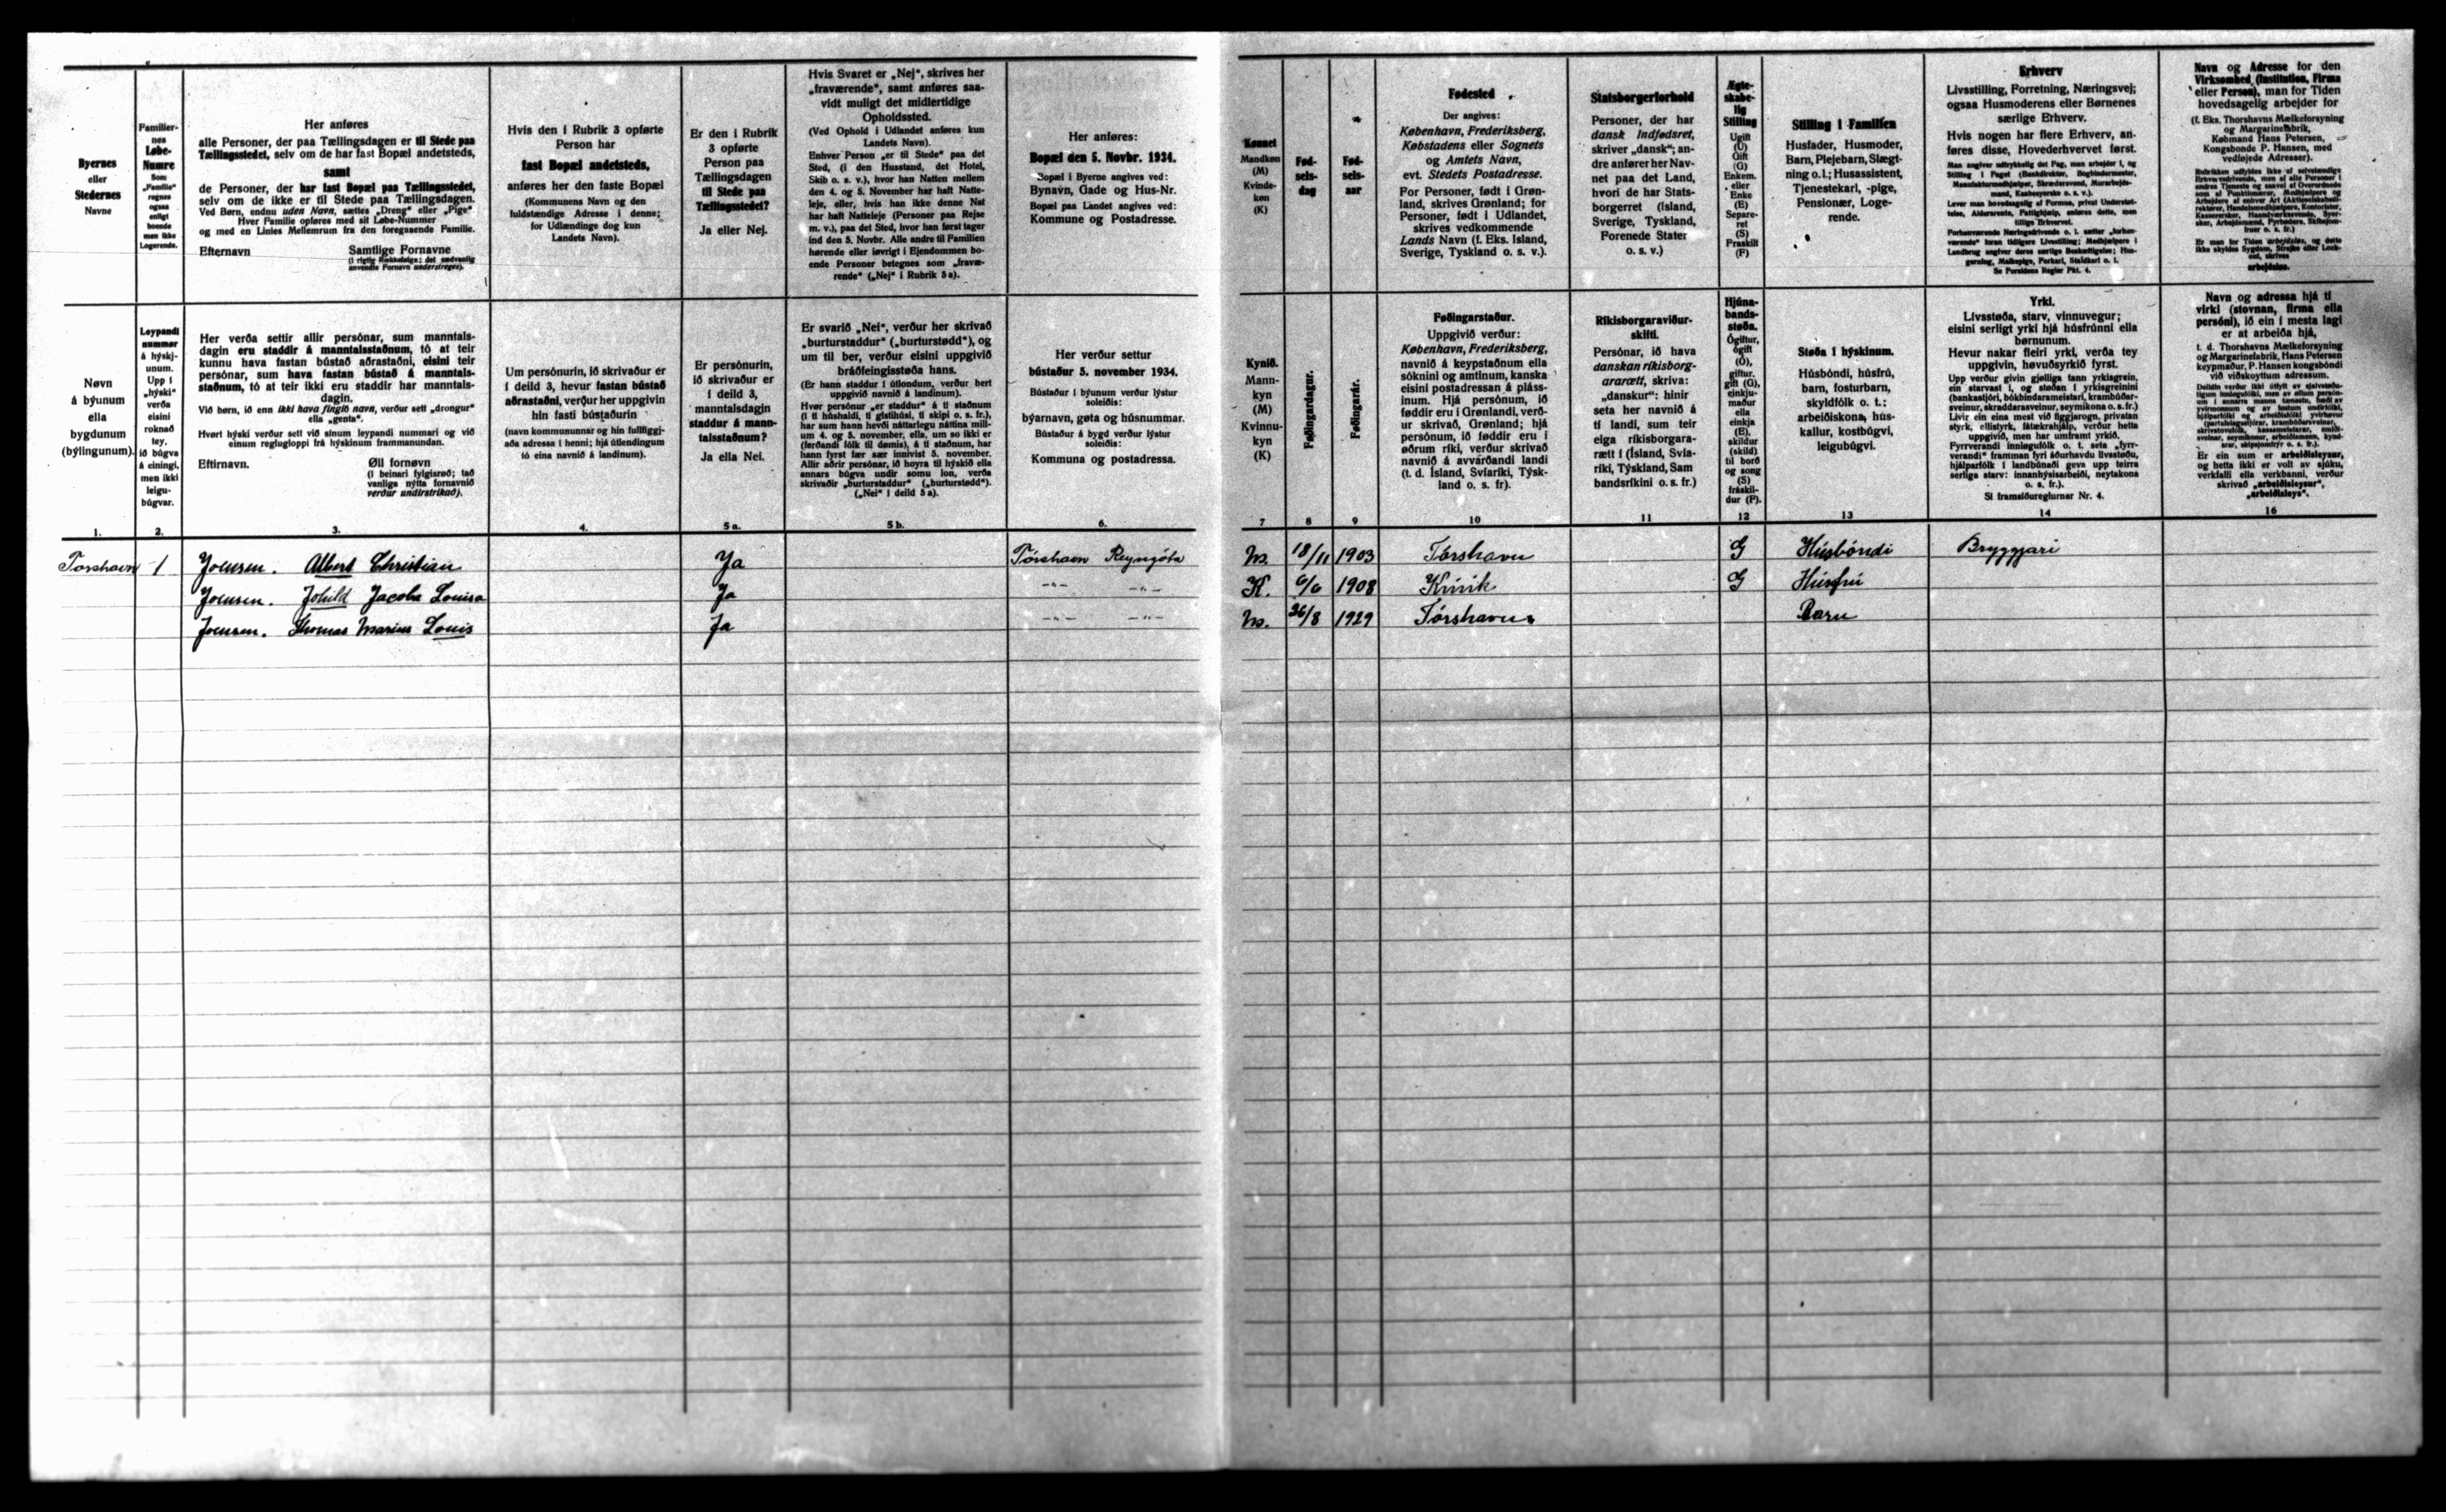 Byernes
eller
Stedernes
Navne
Familier-
nes
Løbe-
Numre
Som
„Familie"
regnes
ogsaa
enligt
boende
men ikke
Logerende.
Her anføres
alle Personer, der paa Tællingsdagen er til Stede paa
Tællingsstedet, selv om de har fast Bopæl andetsteds,
samt
de Personer, der har fast Bopæl paa Tællingsstedet,
selv om de ikke er til Stede paa Tællingsdagen.
Ved Børn, endnu uden Navn, sættes „Dreng" eller „Pige"
Hver Familie opføres med sit Løbe-Nummer
og med en Linies Mellemrum fra den foregaaende Familie.
Efternavn Samtlige Fornavne
(i rigtig Rækkefølge; det sædvanlig
anvendte Fornavn understreges).
Hvis den i Rubrik 3 opførte
Person har
fast Bopæl andetsteds,
anføres her den faste Bopæl
(Kommunens Navn og den
fuldstændige Adresse i denne;
for Udlændinge dog kun
Landets Navn).
Er den i Rubrik
3 opførte
Person paa
Tællingsdagen
til Stede paa
Tællingsstedet?
Ja eller Nej.
Hvis Svaret er „Nej", skrives her
„fraværende", samt anføres saa-
vidt muligt det midlertidige
Opholdssted.
(Ved Ophold i Udlandet anføres kun
Landets Navn).
Enhver Person „er til Stede" paa det
Sted, (i den Husstand, det Hotel,
Skib o. s. v.), hvor han Natten mellem
den 4. og 5. November har haft Natte-
leje, eller, hvis han ikke denne Nat
har haft Natteleje (Personer paa Rejse
m. v.), paa det Sted, hvor han først tager
ind den 5. Novbr. Alle andre til Familien
hørende eller iøvrigt i Ejendommen bo-
ende Personer betegnes som „fravæ-
rende" („Nej" i Rubrik 5 a).
Her anføres:
Bopæl den 5. Novbr. 1934.
Bopæl i Byerne angives ved:
Bynavn, Gade og Hus-Nr.
Bopæl paa Landet angives ved:
Kommune og Postadresse.
Kønnet
Mandkøn
(M)
Kvinde-
køn
(K)
Fød-
sels-
dag
Fød-
sels-
aar
Fødested
Der angives:
København, Frederiksberg,
Købstadens eller Sognets
og Amtets Navn,
evt. Stedets Postadresse.
For Personer, født i Grøn-
land, skrives Grønland; for
Personer, født i Udlandet,
skrives vedkommende
Lands Navn (f. Eks. Island,
Sverige, Tyskland o. s. v.).
Statsborgerforhold
Personer, der har
dansk Indfødsret,
skriver „dansk"; an-
dre anfører her Nav-
net paa det Land,
hvori de har Stats-
borgerret (Island,
Sverige, Tyskland,
Forenede Stater
o. s. v.)
Ægte-
skabe-
lig
Stilling
Ugift
(U)
Gift
(G)
Enkem.
eller
Enke
(E)
Separe-
ret
(S)
Fraskilt
(F)
Stilling i Familien
Husfader, Husmoder,
Barn, Plejebarn, Slægt-
ning o. l.; Husassistent,
Tjenestekarl, -pige,
Pensionær, Loge-
rende.
Erhverv
Livsstilling, Forretning, Næringsvej;
ogsaa Husmoderens eller Børnenes
særlige Erhverv.
Hvis nogen har flere Erhverv, an-
føres disse, Hovederhvervet først.
Man angiver udtrykkelig det Fag, man arbejder i, og
Stilling i Faget (Bankdirektør, Bogbindermester,
Manufakturmedhjælper, Skræddersvend, Murarbejds-
mand, Kaabesyerske o. s. v.).
Lever man hovedsagelig af Formue, privat Understøt-
telse, Aldersrente, Fattighjælp, anføres dette, men
tillige Erhvervet.
Forhenværende Næringsdrivende o. l. sætter „forhen-
værende" foran tidligere Livsstilling; Medhjælpere i
Landbrug angiver deres særlige Beskæftigelse; Hus-
gerning, Malkepige, Forkarl, Staldkarl o. l.
Se Forsidens Regler Pkt. 4.
Navn og Adresse for den
Virksomhed (Institution, Firma
eller Person), man for Tiden
hovedsagelig arbejder for
(f. Eks. Thorshavns Mælkeforsyning
og Margarinefabrik,
Købmand Hans Petersen,
Kongsbonde P. Hansen, med
vedføjede Adresser).
Er man for Tiden arbejdsløs, og dette
ikke skyldes Sygdom, Strejke eller Lock-
out, skrives
arbejdsløs.
Nøvn
á býunum
ella
bygdunum
(býlingunum).
Leypandi
nummør
á hýskj-
unum.
Upp í
„hýski"
verða
eisini
roknað
tey,
ið búgva
á eining,
men ikki
leigu-
búgvar.
Her verða settir allir persónar, sum manntals-
dagin eru staddir á manntalsstaðnum, tó at teir
kunnu hava fastan bústað aðrastaðni, eisini teir
persónar, sum hava fastan bústað á manntals-
staðnum, tó at teir ikki eru staddir har manntals-
dagin.
Við børn, ið enn ikki hava fingið navn, verður sett „drongur"
ella „genta".
Hvørt hýski verður sett við sínum leypandi nummari og við
einum reglugloppi frá hýskinum frammanundan.
Eftirnavn. Øll fornøvn
(í beinari fylgisrøð; tað
vanliga nýtta fornavnið
verður undirstrikað).
Um persónurin, ið skrivaður er
í deild 3, hevur fastan bústað
aðrastaðni, verður her uppgivin
hin fasti bústaðurin
(navn kommununnar og hin fullfiggj-
aða adressa í henni; hjá útlendingum
tó eina navnið á landinum).
Er persónurin,
ið skrivaður er
í deild 3,
manntalsdagin
staddur á mann-
talsstaðnum?
Ja ella Nei.
Er svarið „Nei", verður her skrivað
„burturstaddur" („burturstødd"), og
um til ber, verður eisini uppgivið
bráðfeingisstøða hans.
(Er hann staddur í útlondum, verður bert
uppgivið navnið á landinum).
Hvør persónur „er staddur" á tí staðnum
(í tí húshaldi, tí gistihúsi, tí skipi o. s. fr.),
har sum hann hevði náttarlegu náttina mill-
um 4. og 5. november, ella, um so ikki er
(ferðandi fólk til dømis), á tí staðnum, har
hann fyrst fær sær innivist 5. november.
Allir aðrir persónar, ið hoyra til hýskið ella
annars búgva undir somu lon, verða
skrivaðir „burturstaddur" („burturstødd").
(„Nei" í deild 5 a).
Her verður settur
bústaður 5. november 1934.
Bústaður í býunum verður lýstur
soleiðis:
býarnavn, gøta og húsnummar.
Bústaður á bygd verður lýstur
soleiðis:
Kommuna og postadressa.
Kynið.
Mann-
kyn
(M)
Kvinnu-
kyn
(K)
Føðingardagur.
Føðingarár.
Føðingarstaður.
Uppgivið verður:
København, Frederiksberg,
navnið á keypstaðnum ella
sóknini og amtinum, kanska
eisini postadressan á pláss-
inum. Hjá persónum, ið
føddir eru í Grønlandi, verð-
ur skrivað, Grønland; hjá
persónum, ið føddir eru í
øðrum ríki, verður skrivað
navnið á avvarðandi landi
(t. d. Ísland, Svíaríki, Týsk-
land o. s. fr).
Ríkisborgaraviður-
skifti.
Persónar, ið hava
danskan ríkisborg-
ararætt, skriva:
„danskur": hinir
seta her navnið á
tí landi, sum teir
eiga ríkisborgara-
rætt í (Ísland, Svía-
ríki, Týskland, Sam
bandsríkini o. s. fr.)
Hjúna-
bands-
støða.
Ógiftur,
ógift
(Ó),
giftur,
gift (G),
einkju-
maður
ella
einkja
(E),
skildur
(skild)
til borð
og song
(S)
fráskil-
dur (F).
Støða í hýskinum.
Húsbóndi, húsfrú,
barn, fosturbarn,
skyldfólk o. t.;
arbeiðiskona, hús-
kallur, kostbúgvi,
leigubúgvi.
Yrki.
Lívsstøða, starv, vinnuvegur;
eisini serligt yrki hjá húsfrúnni ella
børnunum.
Hevur nakar fleiri yrki, verða tey
uppgivin, høvuðsyrkið fyrst.
Upp verður givin gjølliga tann yrkisgrein,
ein starvast í, og støðan í yrkisgreinini
(bankastjóri, bókbindarameistari, krambúðar-
sveinur, skraddarasveinur, seymikona o. s. fr.)
Livir ein eina mest við figgjarogn, privatan
styrk, ellistyrk, fátækrahjálp, verður hetta
uppgivið, men har umframt yrkið.
Fyrrverandi innløgufólk o. t. seta „fyrr-
verandi" framman fyri áðurhavdu livsstøðu,
hjálparfólk í landbúnaði geva upp teirra
serliga starv: innanhýsisarbeiði, neytakona
o. s. fr.).
Sí framsíðureglurnar Nr. 4.
Navn og adressa hjá tí
virki (stovnan, firma ella
persóni), ið ein í mesta lagi
er at arbeiða hjá,
t. d. Thorshavns Mælkeforsyning
og Margarinefabrik, Hans Petersen
keypmaður, P. Hansen kongsbóndi
við viðskoyttum adressum.
Er ein sum er arbeiðisleysur,
og hetta ikki er volt av sjúku,
verkfalli ella verkbanni, verður
skrivað „arbeiðisleysur",
„arbeiðisleys".
1. 2. 3. 4. 5 a. 5 b. 6. 7 8 9 10 11 12 13 14 16
Tórshavn 1 Joensen. Albert Christian Ja Tórshavn Reyngøta M. 18/11 1903 Tórshavn G Húsbóndi Bryggjari
Joensen. Jóhild Jacoba Louisa Ja -"- -"- K. 6/6 1908 Kvívík G Húsfrú
Joensen. Thomas Marius Louis Ja -"- -"- M. 26/8 1929 Tórshavn. Barn